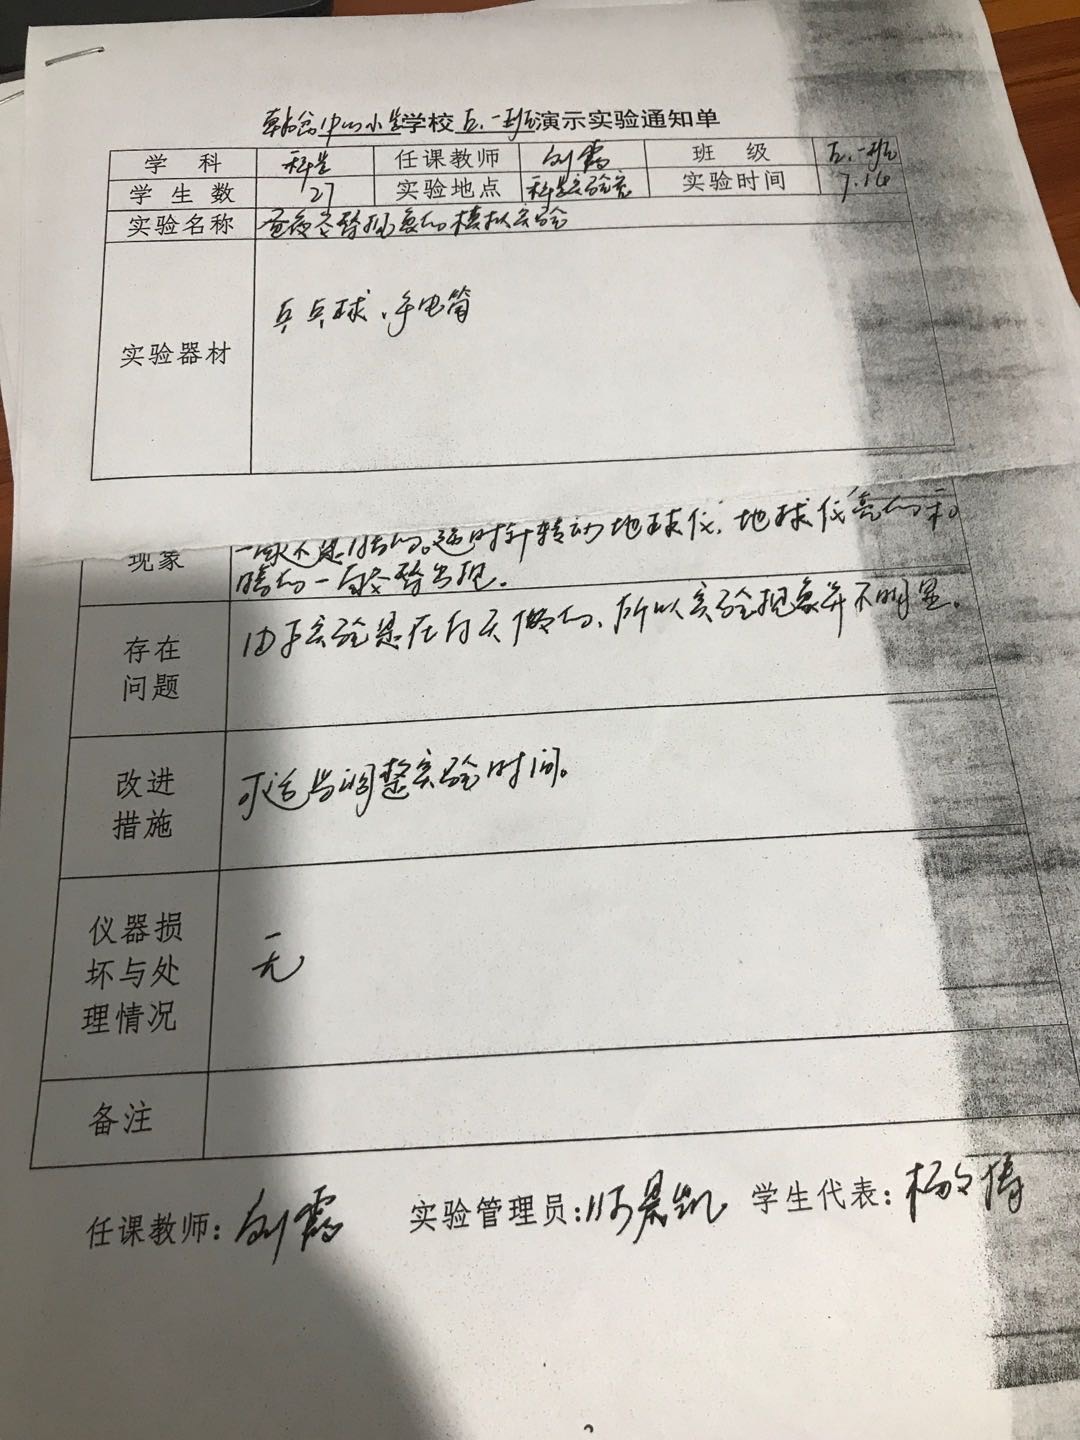 中心小学学校五.一班演示实验通知单
学 科 科学 任课教师 刘霞 班 级 五.一班
学 生 数 27 实验地点 科学实验室 实验时间 7.16
实验名称 昼夜交替现象的模拟实验
实验器材 乒乓球、手电筒
现象 逆时针转动地球仪,地球仪亮的和
暗的一面交替出现。
存在 由于实验是在白天做的、所以实验现象并不明显。
问题
改进 可适当调整实验时间。
措施
仪器损
坏与处 无
理情况
备注
任课教师:刘霞 实验管理员: 晨凯 学生代表:杨